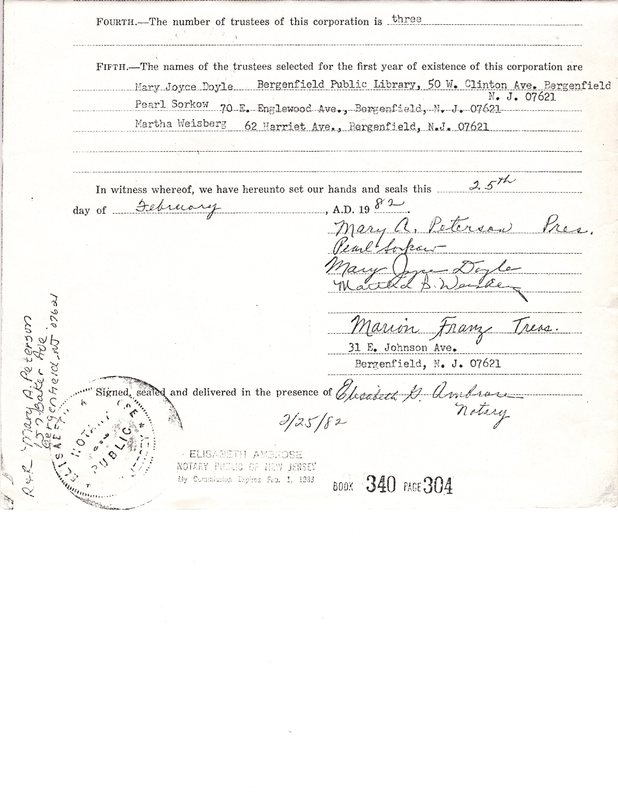 FOURTH.—The number of trustees of this corporation is three
FIFTH.—The names of the trustees selected for the first year of existence of this corporation are
Mary Joyce Doyle Bergenfield Public Library, 50 W. Clinton Ave. Bergenfield
N. J. 07621
Pearl Sorkow 70 E. Englewood Ave., Bergenfield, N. J. 07621
Martha Weisberg 62 Harriet Ave., Bergenfield, N.J. 07621
In witness whereof, we have hereunto set our hands and seals this 25th
day of February, A.D. 1982.
Mary A. Peterson Pres.
Pearl Sorkow
Mary Joyce Doyle
Marion Franz Treas.
31 E. Johnson Ave.
Bergenfield, N. J. 07621
Signed, sealed and delivered in the presence of Elisabeth G. Ambrose
Notary
2/25/82
ELISABETH AMBROSE
NOTARY PUBLIC OF NEW JERSEY
My Commission Expires Feb. 1, 1983
BOOK 340 PAGE 304
R&R Mary A. Peterson
157 Baker Ave.
Bergenfield, NJ 07621
NOTARY
PUBLIC